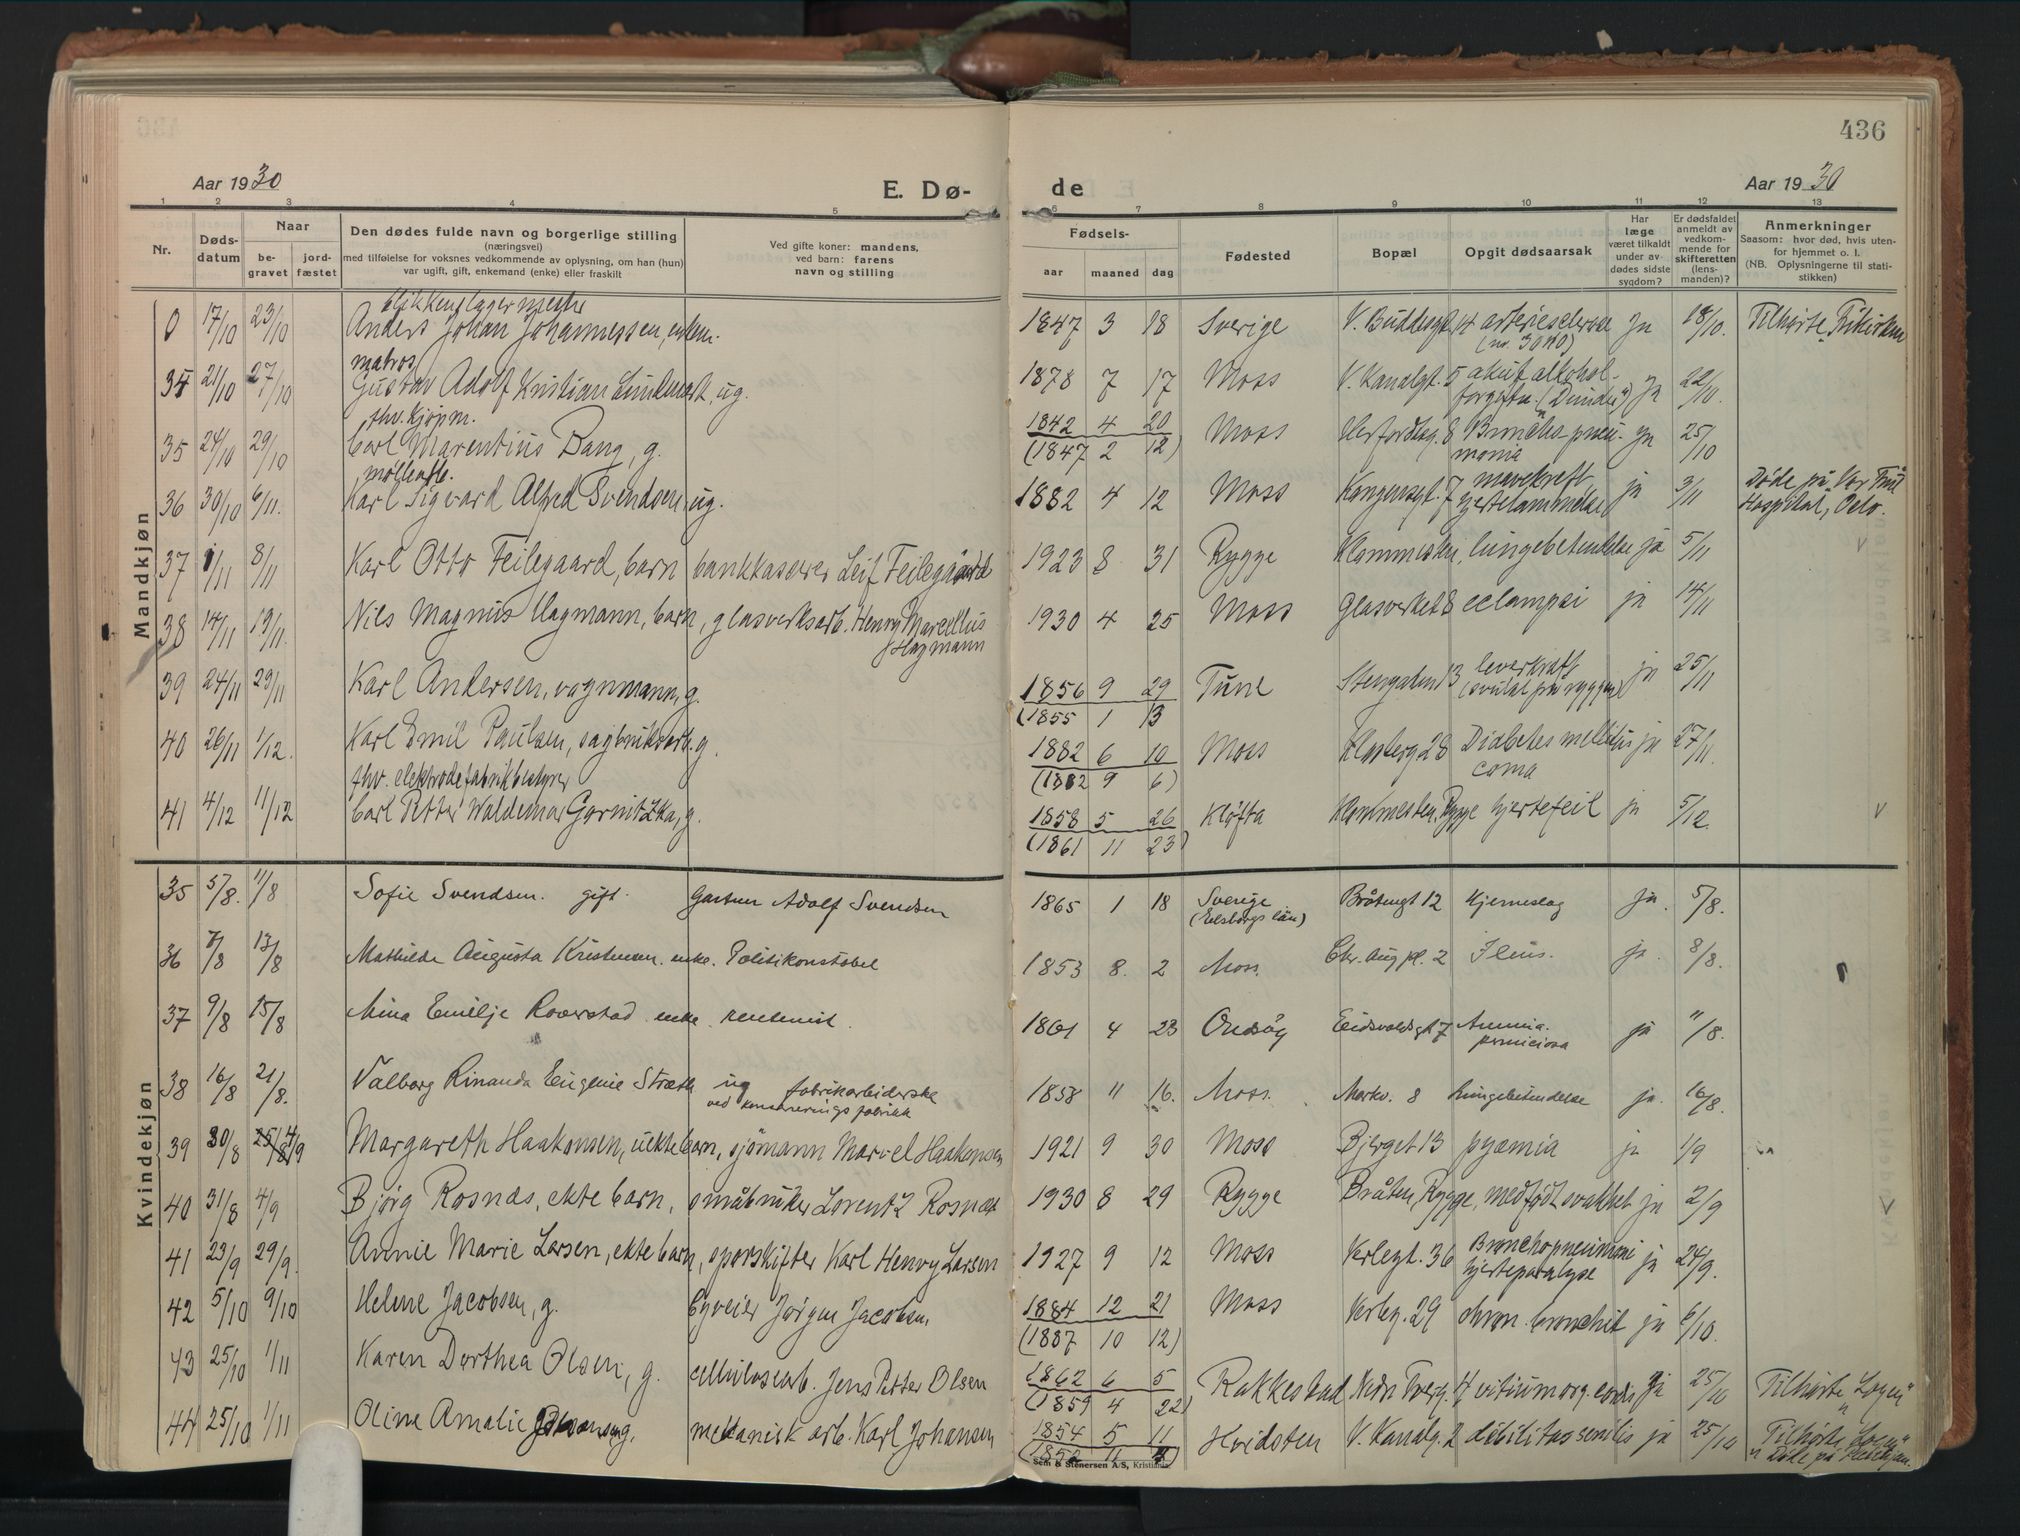 436
Aar 1930
E. Dø-
de
Aar 1930
1 2 3 4 5 6 7 8 9 10 11 12 13
Nr.
Døds-
datum
Naar
be-
gravet
jord-
fæstet
Den dødes fulde navn og borgerlige stilling
(næringsvei)
med tilføielse for voksnes vedkommende av oplysning, om han (hun)
var ugift, gift, enkemand (enke) eller fraskilt
Ved gifte koner: mandens,
ved barn: farens
navn og stilling
Fødsels-
aar maaned dag
Fødested
Bopæl
Opgit dødsaarsak
Har
læge
været tilkaldt
under av-
dødes sidste
sygdom?
Er dødsfaldet
anmeldt av
vedkom-
mende for
skifteretten
(lens-
manden)?
Anmerkninger
Saasom: hvor død, hvis uten-
for hjemmet o. l.
(NB. Oplysningerne til stati-
stikken)
Mandkjøn
blikkenslagermester
0 17/10 23/10 Anders Johan Johannessen, enkem. 1847 3 18 Sverige V. Buddesgt. 14 arteriesclerose Ja 18/10. Tilhørte Frikirken
matros
34 21/10 27/10 Gustav Adolf Kristian Lindemark, ug. 1878 7 17 Moss V. Kanalgt. 5 akut alkohol-
forgiftn. ja 22/10.
fhv. kjøpm.
35 24/10 29/10 Carl Marentius Bang, g. 1842 4 20 Moss 8 Broncho-pneu-
(1847 2 12) monia ja 25/10
36 30/10 6/11. Karl Sigvard Alfred Svendsen, ug. 1882 4 12 Moss Kongensgt. 7 mavekreft
hjertelammelse ja 3/11 Døde på Vor Frue
Hospital, Oslo.
37 1/11 8/11 Karl Otto Feilegaard, barn bankkaserer Leif Feilegaard 1923 8 31 Rygge lungebetendelse ja 5/11
38 14/11 19/11. Nils Magnus Hagmann, barn, glasverksarb. Henry Marcellus
Hagmann 1930 4 25 Moss Glasverket 8 eclampsi ja 14/11
39 24/11 29/11 Karl Andersen, vognmann, g. 1856 9 29 Tune Stengaten 13 leverkreft
(1855 1 13 (svulst på ryggen) ja 25/11
40 26/11 1/12. Karl Emil Paulsen, sagbruksarb. g. 1882 6 10 Moss Klosterg 28 Diabetes mellitus ja 27/11.
(1882 9 6) coma
fhv. elektrodefabrikbestyrer
41 4/12 11/12 Carl Petter Waldemar Garnitzka, g. 1858 5 26 Kløfta Rygge hjertefeil ja 5/12.
(1861 11 23)
Kvindekjøn
35 5/8. 11/8 Sofie Svendsen. gift. Gartner Adolf Svendsen 1865 1 18 Sverige Bråtengt 12 Hjerneslag ja. 5/8.
36 7/8 13/8 Mathilde Augusta Kristensen. enke. Politikonstabel 1853 8. 2 Moss. Chr. Aug pl. 2 Ileus. ja. 8/8.
37 9/8 15/8 Mina Emilje Roverstad enke. rentenist. 1861 4 23 Onsøy Eidsvoldsgt 7 Anemia.
perniciosa ja 11/8.
38 16/8 21/8. Valborg Rinanda Eugenie Stræte ug fabrikarbeiderske
ved konserveringsfabrikk 1858 11 16. Moss. Markv. 8 Lungebetendelse ja. 16/8.
39 30/8 25/8 4/9 Margareth Haakonsen, uekte barn, sjømann Marcel Haakonsen 1921 9 30 Moss Bjerget 13 pyæmia ja 1/9
40 31/8 4/9 Bjørg Rosnæs, ekte barn, småbruker Lorentz Rosnæs 1930 8 29 Rygge Bråten, Rygge, medfødt svakhet ja 2/9
41 23/9 29/9. Annie Marie Larsen, ekte barn, sporskifter Karl Henry Larsen 1927 9 12 Moss Verlegt. 36 Bronchopneumoni
hjerteparalyse ja 24/9.
42 5/10 9/10 Helene Jacobsen, g. Jørgen Jacobsen, 1884 12 21 Moss Verleg. 29 chron. bronchit ja 6/10.
(1887 10 12)
43 25/10 1/11 Karen Dorthea Olsen, g. cellulosearb. Jens Petter Olsen 1862 6 5 Rakkestad Nedr Tverg. 4 vitium org. cordis ja 25/10 Tilhørte „Logen"
(1859 4 22)
44 25/10 1/11 Oline Amalie Johansen g. mekanisk arb. Karl Johansen 1854 5 11 Hvidsten V. Kanalg. 2 debilitas senilis ja 25/10 Tilhørte „Logen"
Sem & Stenersen A/S, Kristiania.